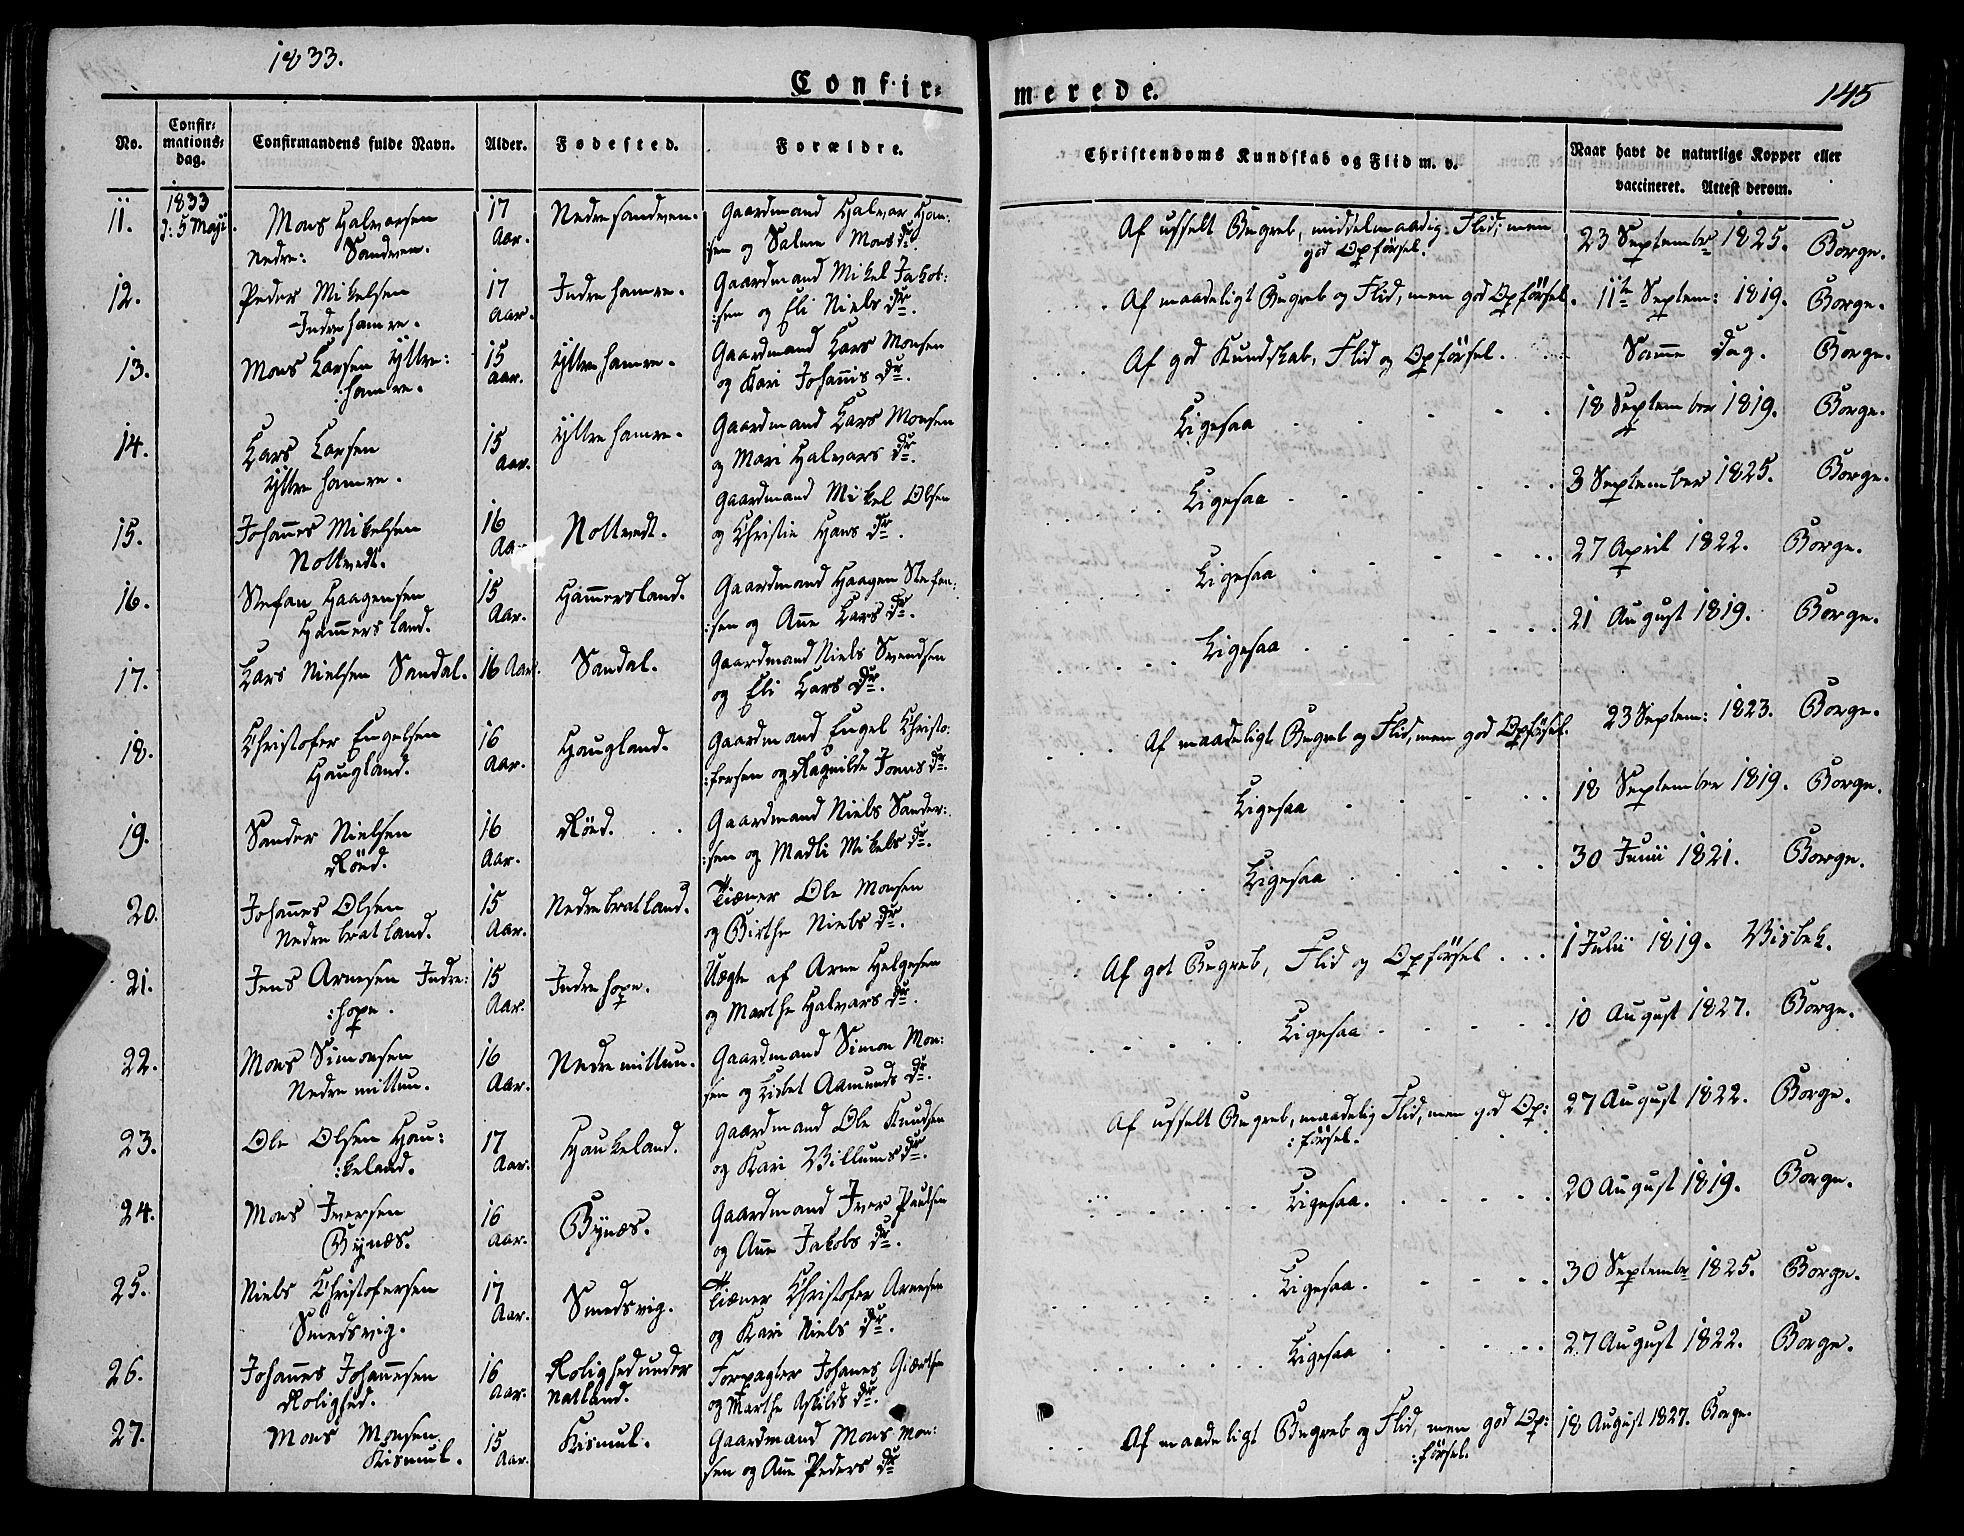 1833.
Confir-
merede.
145
No.
Confir-
mations-
dag.
Confirmandens fulde Navn.
Alder.
Fødested.
Forældre.
Christendoms Kundskab og Flid m. v.
Naar havt de naturlige Kopper eller
vaccineret. Attest derom.
11.
1833
d: 5 Maji.
Mons Halvorsen
Nedre: Sandven.
17
Aar.
Nedresandven.
Gaardmand Halvor Han:
:sen og Salme Mons Dr.
Af usselt Begreb, middelmaadig Flid; men
god Opførsel.
23 September 1825. Borge.
12.
Peder Mikelsen
Indrehamre.
17
Aar.
Indrehamre.
Gaardmand Mikel Jakob:
:sen og Eli Niels Dr.
Af maadeligt Begreb og Flid, men god Opførsel.
11te Septem: 1819. Borge.
13.
Mons Larsen Yttre:
:hamre.
15
Aar.
Yttrehamre.
Gaardmand Lars Monsen
og Kari Johannis Dr.
Af god Kundskab, Flid og Opførsel.
Samme Dag. Borge.
14.
Lars Larsen
Yttrehamre.
15
Aar.
Yttrehamre.
Gaardmand Lars Monsen
og Mari Halvors Dr.
Ligesaa
18 September 1819. Borge.
15.
Johannes Mikelsen
Noltvedt.
16
Aar.
Noltvedt.
Gaardmand Mikel Olsen
og Christie Hans Dr.
Ligesaa
3 September 1825. Borge.
16.
Stefan Haagensen
Hammersland.
15
Aar.
Hammersland.
Gaardmand Haagen Stefen:
:sen og Ane Lars Dr.
Ligesaa
27 April 1822. Borge.
17.
Lars Nielsen Sandal.
16 Aar.
Sandal.
Gaardmand Niels Svendsen
og Eli Lars Dr.
Ligesaa
21 August 1819. Borge.
18.
Christofer Engelsen
Haugland.
16
Aar.
Haugland.
Gaardmand Engel Christo:
:fersen og Ragnilde Jons Dr.
Af maadeligt Begreb og Flid, men god Opførsel.
23 Septem: 1823. Borge.
19.
Sander Nielsen
Röed.
16
Aar.
Röed.
Gaardmand Niels Sander:
:sen og Madli Mikels Dr.
Ligesaa
18 September 1819. Borge.
20.
Johannes Olsen
Nedrebratland.
15
Aar.
Nedrebratland.
Tiæner Ole Monsen
og Birthe Niels Dr.
Ligesaa
30 Junii 1821. Borge.
21.
Jens Arnesen Indre:
:hope.
15
Aar.
Indrehope.
Uægte af Arne Helgesen
og Marthe Halvors Dr.
Af got Begreb, Flid og Opførsel
1 Julii 1819. Visbek.
22.
Mons Simonsen
Nedremittun.
16
Aar.
Nedremittun.
Gaardmand Simon Mon:
sen og Lisbet Aamunds Dr.
Ligesaa
10 August 1827. Borge.
23.
Ole Olsen Hau:
:keland.
17
Aar.
Haukeland.
Gaardmand Ole Knudsen
og Kari Villums Dr.
Af usselt Begreb, maadelig Flid, men god Op:
:førsel.
27 August 1822. Borge.
24.
Mons Iversen
Bynæs.
16
Aar.
Bynæs.
Gaardmand Iver Paulsen
og Ane Jakobs Dr.
Ligesaa.
20 August 1819. Borge.
25.
Niels Christofersen
Smedsvig.
17
Aar.
Smedsvig.
Tiæner Christofer Arnesen
og Kari Niels Dr.
Ligesaa.
30 September 1825. Borge.
26.
Johannes Johannesen
Rolighed.
16
Aar.
Rolighed under
Natland.
Forpagter Johanes Giertsen
og Marthe Askilds Dr.
Ligesaa
27 August 1822. Borge.
27.
Mons Monsen
Kismul.
15
Aar.
Kismul.
Gaardmand Mons Mon:
sen og Ane Peders Dr
Af maadeligt Begreb og Flid, men god Op:
:førsel.
18 August 1827. Borge.